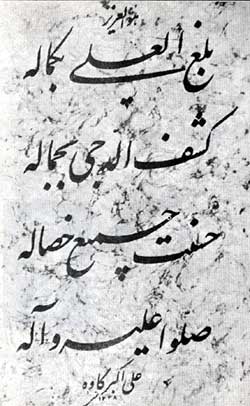 هوالعزیز
بلغ العلی بکماله
کشف الدجی بجماله
حسنت جمیع خصاله
صلوا علیه و آله
علی اکبر کاوه